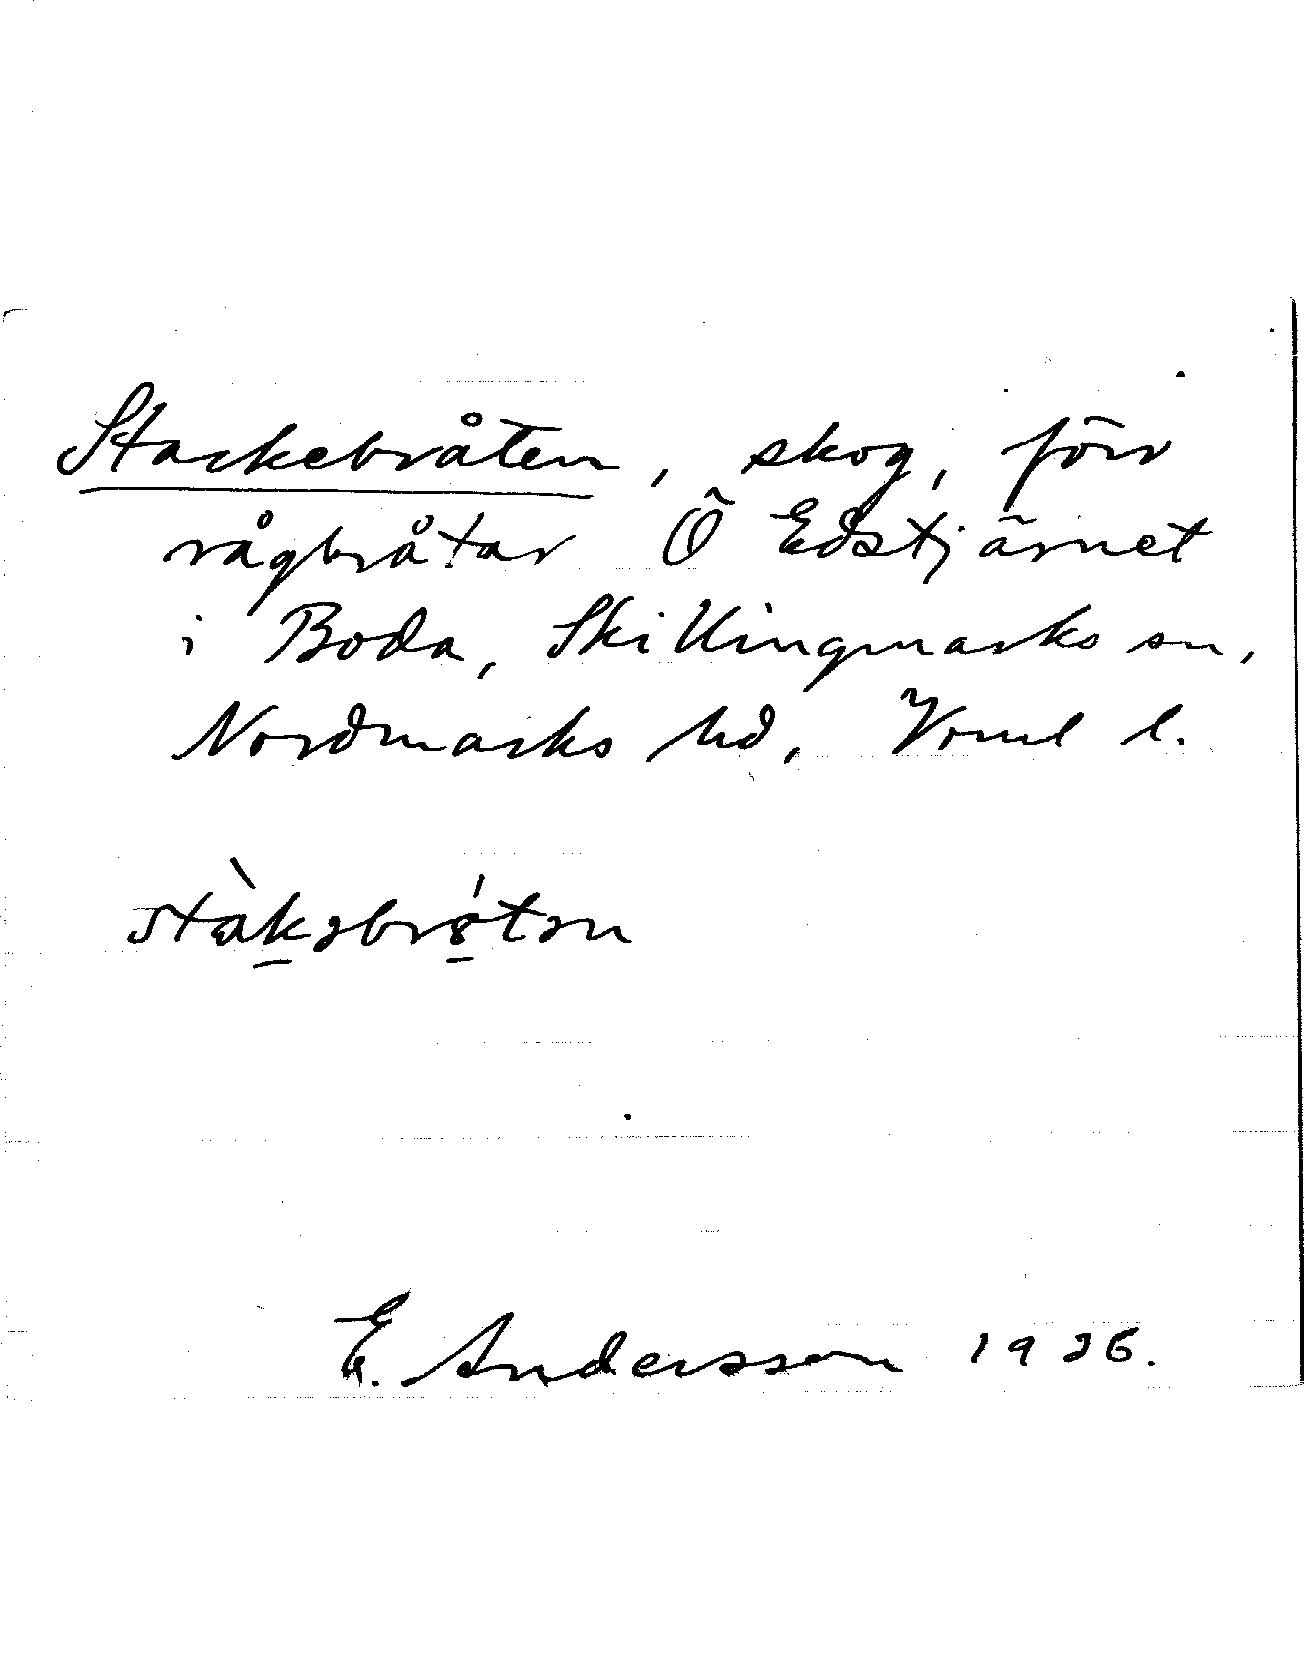 Stackebråten, skog, förr
rågbråtar Ö Edstjärnet
i Boda, Skillingmarks sn,
Nordmarks hd, Vrml l.
E. Andersson 1936.